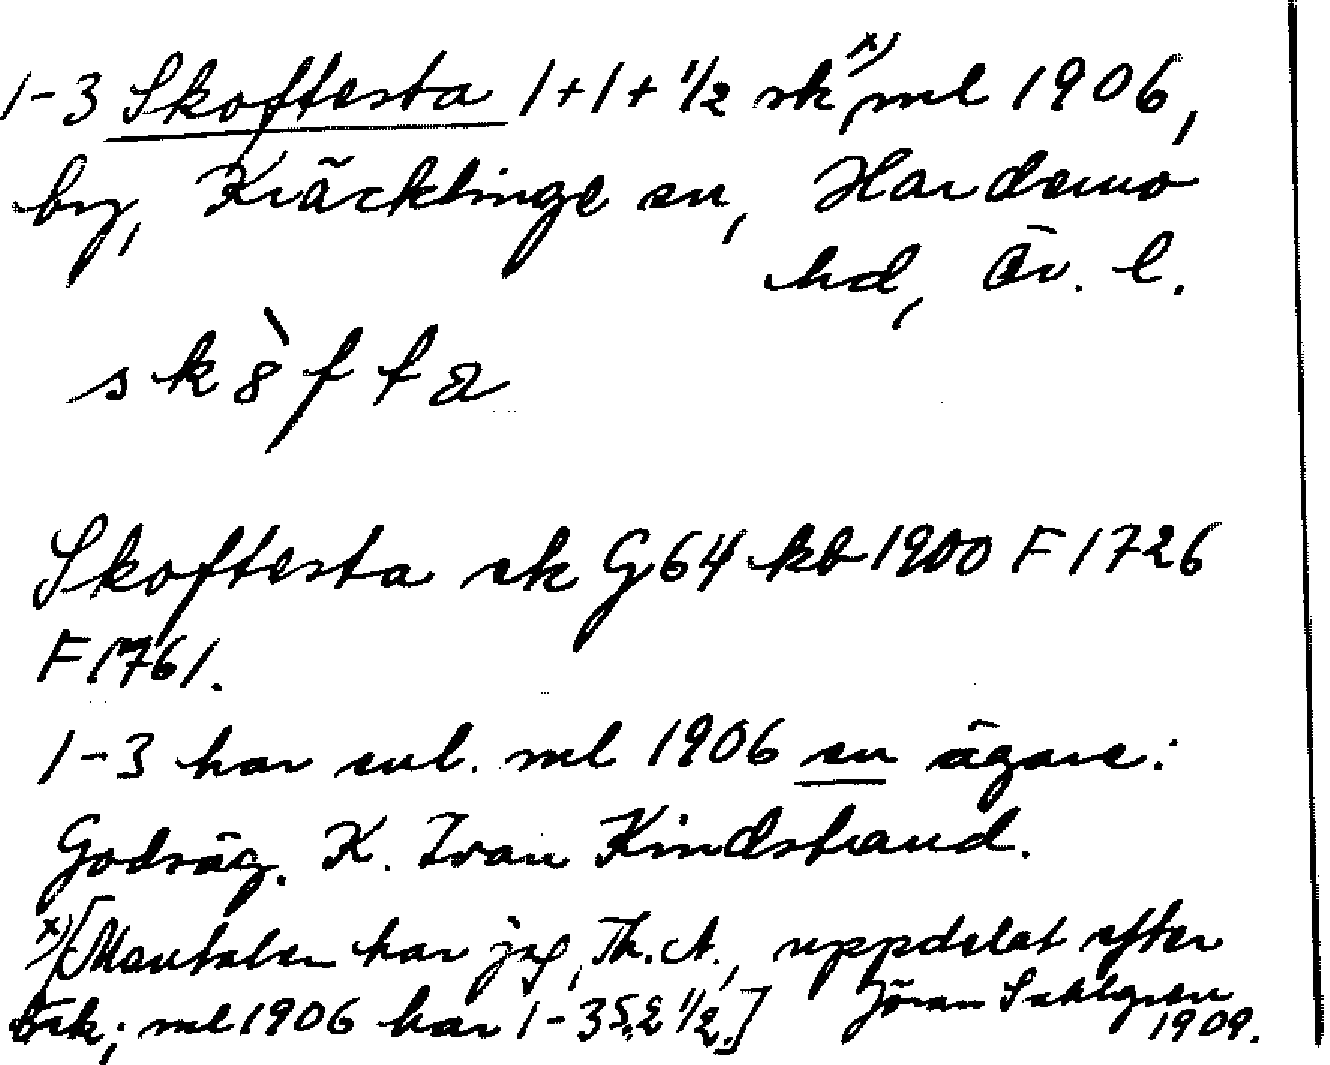 1-3 Skoftesta 1+1+1/2 sk x) ml 1906,
by, Kräcklinge sn, Hardemo
hd, Ör. l.
skòfta
Skoftesta sk G64 kb 1900 F 1726
F 1761.
1-3 har enl. ml 1906 en ägare:
Godsäg. K. Ivan Kindstrand.
x) [Mantalen har jag, Th. A., uppdelat efter
Örk; ml 1906 har 1-3 S:a 2 1/2.] Jöran Sahlgren
1909.